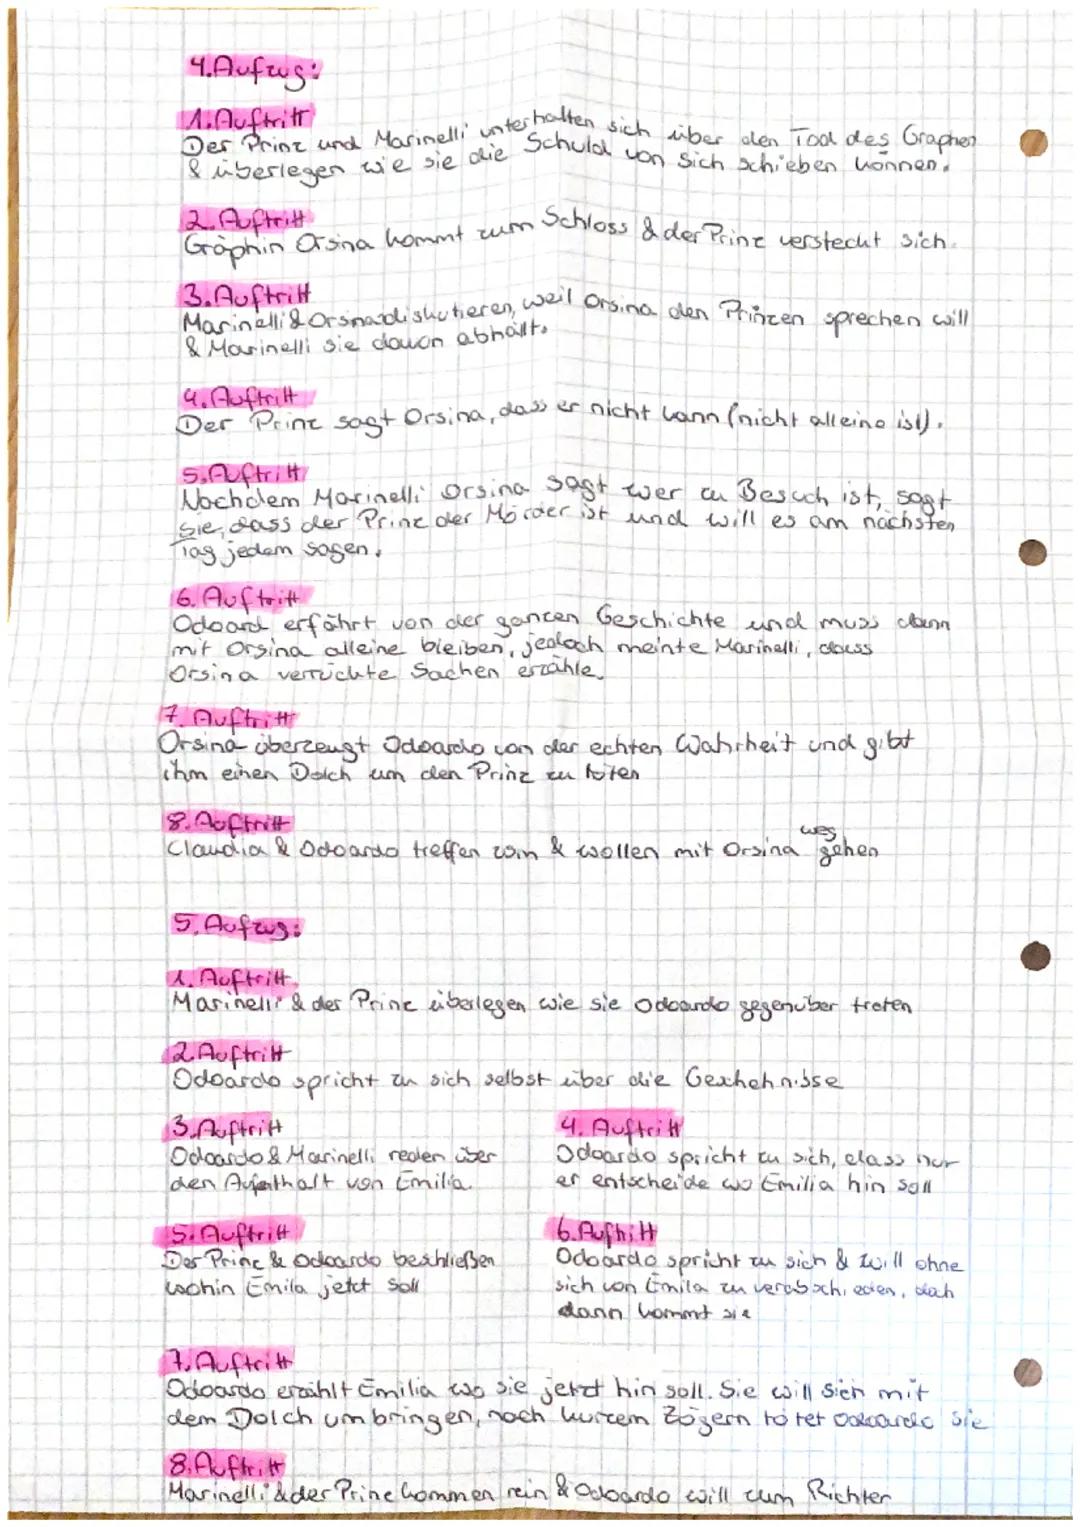 4.Aufzug:
1.Auftritt
Der Prinz und Marinelli unterhalten sich über den Tod des Graphen
& überlegen wie sie die Schuld von sich schieben können.
2. Auftritt
Gräphin Orsina kommt zum Schloss & der Prinz versteckt sich.
3.Auftritt
Marinelli & Orsina diskutieren, weil Orsina den Prinzen sprechen will
& Marinelli sie davon abhält.
4. Auftritt
Der Prinz sagt Orsina, dass er nicht kann (nicht alleine ist).
5.Auftritt
Nachdem Marinelli Orsina sagt wer zu Besuch ist, sagt
sie, dass der Prinz der Mörder ist und will es am nächsten
Tag jedem sagen.
6. Auftritt
Odoard erfährt von der ganzen Geschichte und muss dann
mit Orsina alleine bleiben, jedoch meinte Marinelli, dass
Orsina verrückte Sachen erzähle.
7. Auftritt
Orsina überzeugt Odoardo von der echten Wahrheit und gibt
ihm einen Dolch um den Prinz zu töten
8. Auftritt
weg
Claudia & Odoardo treffen & wollen mit Orsina gehen
5. Aufzug:
1. Auftritt
Marinelli & der Prinz überlegen wie sie Odoardo gegenüber treten
2.Auftritt
Odoardo spricht zu sich selbst über die Geschehnisse
3.Auftritt
Odoardo & Marinelli reden über
den Aufenthalt von Emilia
4. Auftritt
Odoardo spricht zu sich, dass nur
er entscheide wo Emilia hin soll
5. Auftritt
Der Prinz & Odoardo beschließen
wohin Emila jetzt soll
6.Auftritt
Odoardo spricht zu sich & will ohne
sich von Emila zu verabschieden, doch
dann kommt sie
7. Auftritt
Odoardo erzählt Emilia wo sie jetzt hin soll. Sie will sich mit
dem Dolch umbringen, nach kurzem Zögern tötet Odoardo sie
8. Auftritt
Marinelli & der Prinz kommen rein & Odoardo will zum Richter